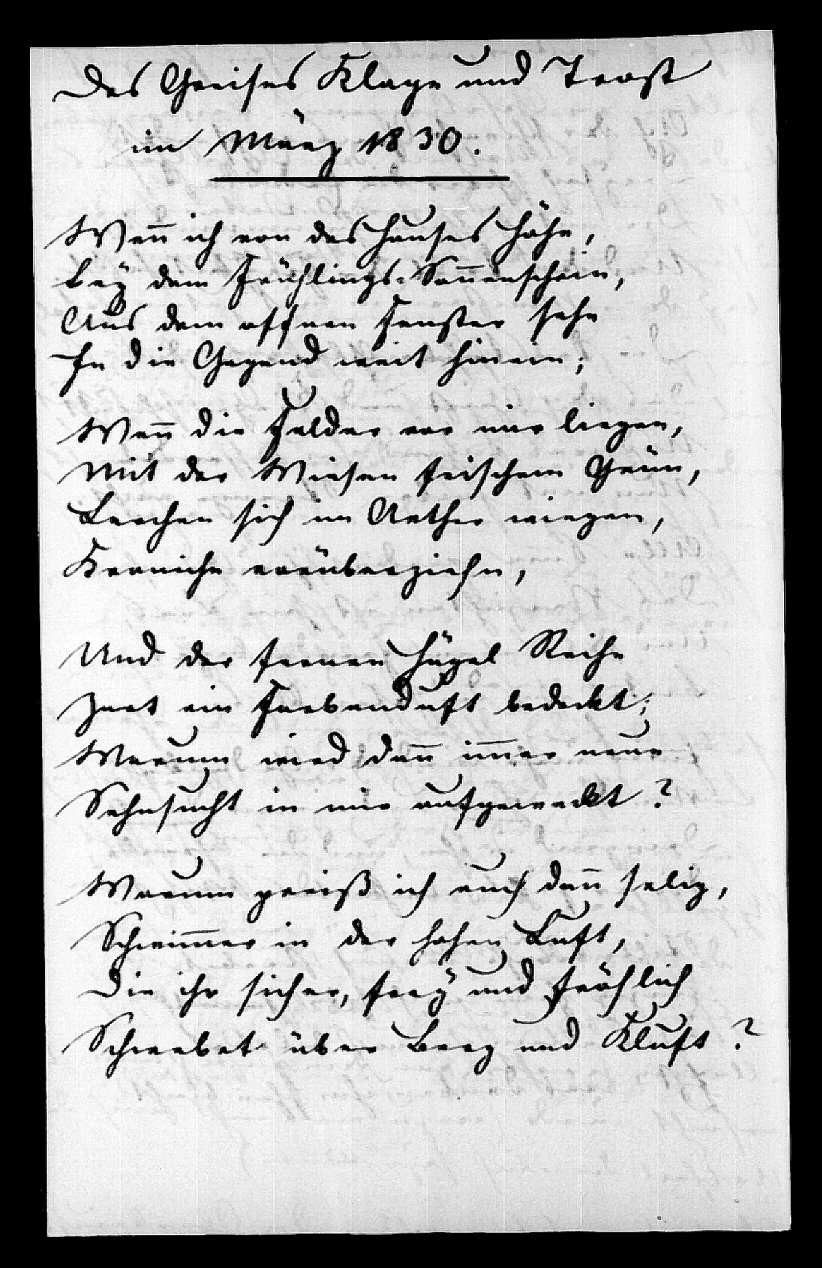 Des Greises Klage und Trost
im März 1830.
Wen̄ ich von des Hauses Höhe,
Bey dem Frühlings-Son̄enschein,
Aus dem offnen Fenster sehe
In die Gegend weit hinein;
Wen̄ die Felder vor mir liegen,
Mit der Wiesen frischem Grün,
Lerchen sich im Aether wiegen,
Kraniche vorüberziehn,
Und der fernen Hügel Reihe
Zart ein Farbenduft bedeckt;
Warum wird dan̄ im̄er neue
Sehnsucht in mir aufgeweckt?
Warum preiß ich euch dan̄ selig,
Schwim̄er in der hohen Luft,
Die ihr sicher, frey und fröhlich
Schwebet über Berg und Kluft?